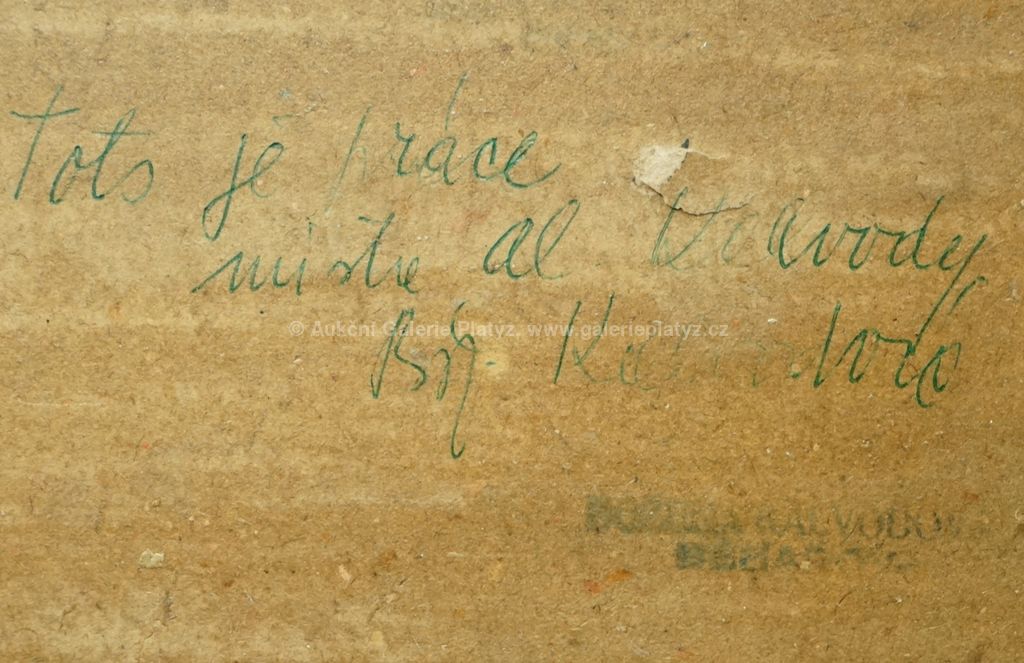 Toto je práce
mistra Al. Kalvody
Bož. Kalvodová
© Aukční Galerie Platýz, www.galerieplatyz.cz
KALVODOVÁ